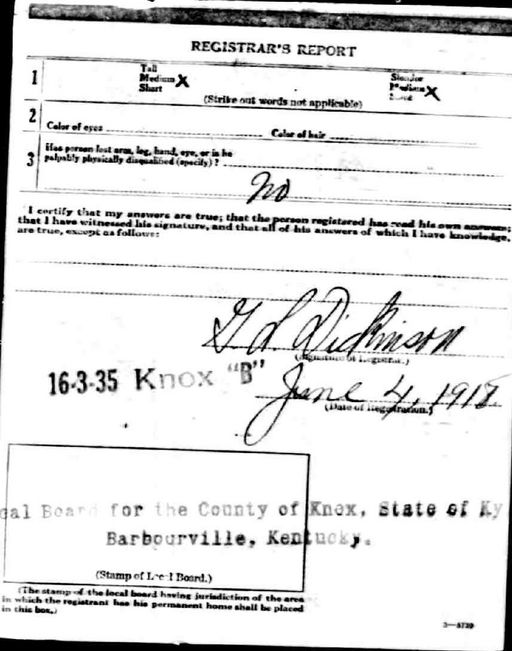 REGISTRAR'S REPORT
1 Tall Slender
Medium X Medium X
Short Stout
(Strike out words not applicable)
2 Color of eyes Color of hair
3 Has person lost arm, leg, hand, eye, or is he
palpably physically disqualified (specify)?
No
I certify that my answers are true; that the person registered has read his own answers;
that I have witnessed his signature, and that all of his answers of which I have knowledge,
are true, except as follows:
G L Dickinson
(Signature of Registrar.)
16-3-35 Knox "B" June 4, 1918
(Date of Registration.)
cal Board for the County of Knox, State of Ky
Barbourville, Kentucky.
(Stamp of Local Board.)
(The stamp of the local board having jurisdiction of the area
in which the registrant has his permanent home shall be placed
in this box.)